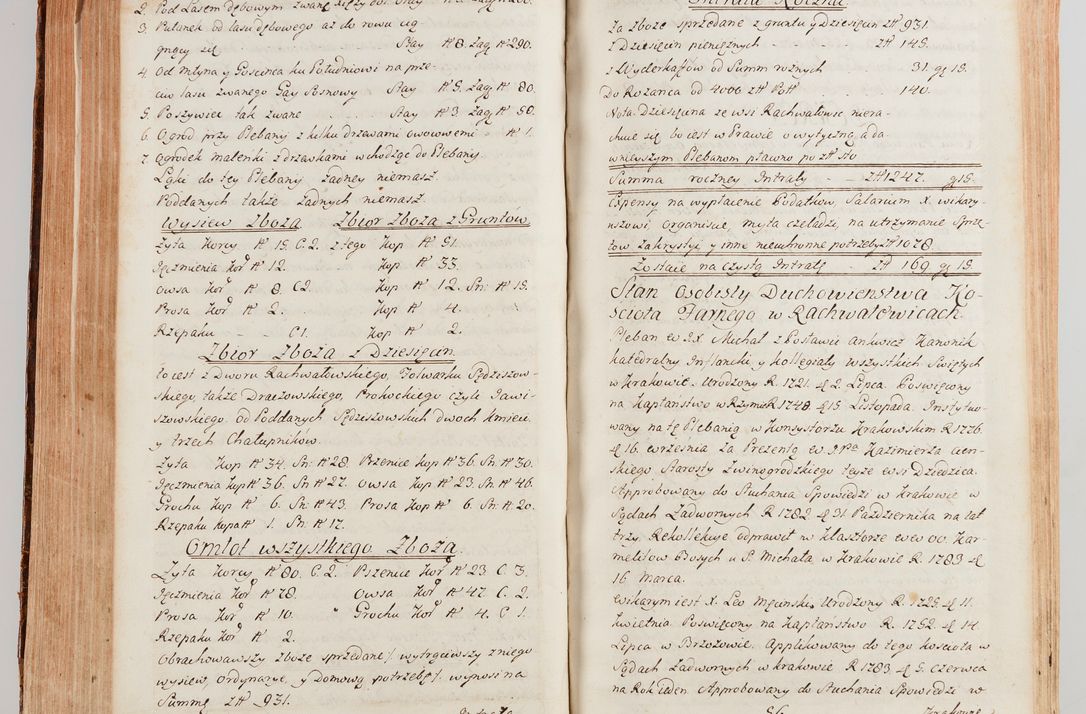 2. Pod Lasem dębowym zwane
3. Pułanek od lasu dębowego aż do rowu cią-
gnący się Stay N 8. Zag. N 290.
4. Od młyna y Goscinca ku Południowi na prze-
ciw lasu zwanego Gay Sosnowy Stay N 5. Zag. N 80.
5. Poszywiec tak zwane Stay N 3 Zag. N 50.
6. Ogrod przy Plebanij z kilku drzewami owocowemi N 1.
7. Ogrodek malenki z drzewkami wchodząc do Plebanij.
Łąki do tey Plebanij żadney niemasz.
Poddanych także żadnych niemasz.
Wysiew Zboża. Zbior Zboża z Gruntow.
Żyta Korcy N 15. C. 2. z tego Kop N 51.
Jęczmienia Kor. N 12. Kop N 33.
Owsa Kor. N 8. C 2. Kop N 12. Sn: N 15.
Prosa Kor. N 2. Kop N 4.
Rzepaku - C 1. Kop N 2.
Zbior Zboża z Dziesięcin
to iest z Dworu Rachwałowskiego, Folwarku Sędziszow-
skiego, także Draczowskiego, Prokockiego czyli Jawi-
szowskiego. od Poddanych Sędziszowskich dwoch kmieci,
y trzech Chałupników.
Żyta Kop N 34. Sn: N 28. Przenice Kop N 36. Sn: N 30.
Jęczmienia Kop N 36. Sn: N 27. Owsa Kop N 23. Sn: N 46.
Grochu Kop N 6. Sn: N 43. Prosa Kop N 6. Sn: N. 20.
Rzepaku kopa N 1. Sn: N 17.
Omłot wszystkiego Zboża.
Żyta Korcy N 80. C. 2. Pszenice Kor. N 23. C. 3.
Jęczmienia Kor. N 78. Owsa Kor. N 47. C. 2.
Prosa Kor. N 10. " Grochu Kor. N 4. C. 1.
Rzepaku Kor. N 2.
Obrachowawszy zboże sprzedane /: wytrąciwszy z niego
wysiew, Ordynarye, y Domową potrzebę :/. wynosi na
Summę Zł N 931.
Intrata Roczna
Za zboże sprzedane z gruntu y Dziesięcin Zł 931.
z Dziesięcin pieniężnych - - - Zł 145.
z Wyderkaffow od Summ rożnych 31. g. 15.
Do Rożańca od 4000 zł Pol. 140.
Nota. Dziesięcina ze wsi Rachwałowic niera-
chuie się, bo iest w Prawie o wytyczną, a da-
wnieyszym Plebanom płacono po zł sto
Summa roczney Intraty - - Zł 1247. g 15.
Expensy na wypłacenie Podatkow, Salarium X. wikary-
uszowi, Organiscie, myto czeladzi, na utrzymanie Sprzę-
tow Zakrystyi y inne nieuchronne potrzeby zł 1078.
Zostaie na czystą Intratę - zł 169 g. 15.
Stan Osobisty Duchowienstwa Ko-
scioła Farnego w Rachwałowicach.
Pleban W. JX Michał z Postawic Ankwicz Kanonik
katedralny Inflancki, y kollegiaty wszystkich Swiętych
w Krakowie. Urodzony R. 1721. d 2. Lipca. Poswięcony
na Kapłanstwo w Rzymie R 1748. d 15. Listopada. Instytuo-
wany na tę Plebanią w Konsystorzu Krakowskim R 1776.
d 16. września za Prezentą W. JPa Kazimierza
skiego Starosty Zwinogrodzkiego teyze wsi Dziedzica.
Approbowany do Słuchania Spowiedzi w Krakowie w
Sądach Zadwornych R 1782. d 31. Pazdziernika na lat
trzy. Rekollekcye odprawił w Klasztorze WW OO. Kar-
melitow Bosych u S. Michała w Krakowie R. 1783 d
16. Marca.
Wikarym iest X. Leo Męcinski Urodzony R. 1725 d 11.
kwietnia Poswięcony na Kapłanstwo R. 1752. d 14.
Lipca w Brzozowie. Applikowany do tego koscioła w
Sądach Zadwornych w Krakowie R 1783. d 5. Czerwca
na Rok ieden. Approbowany do Słuchania Spowiedzi w